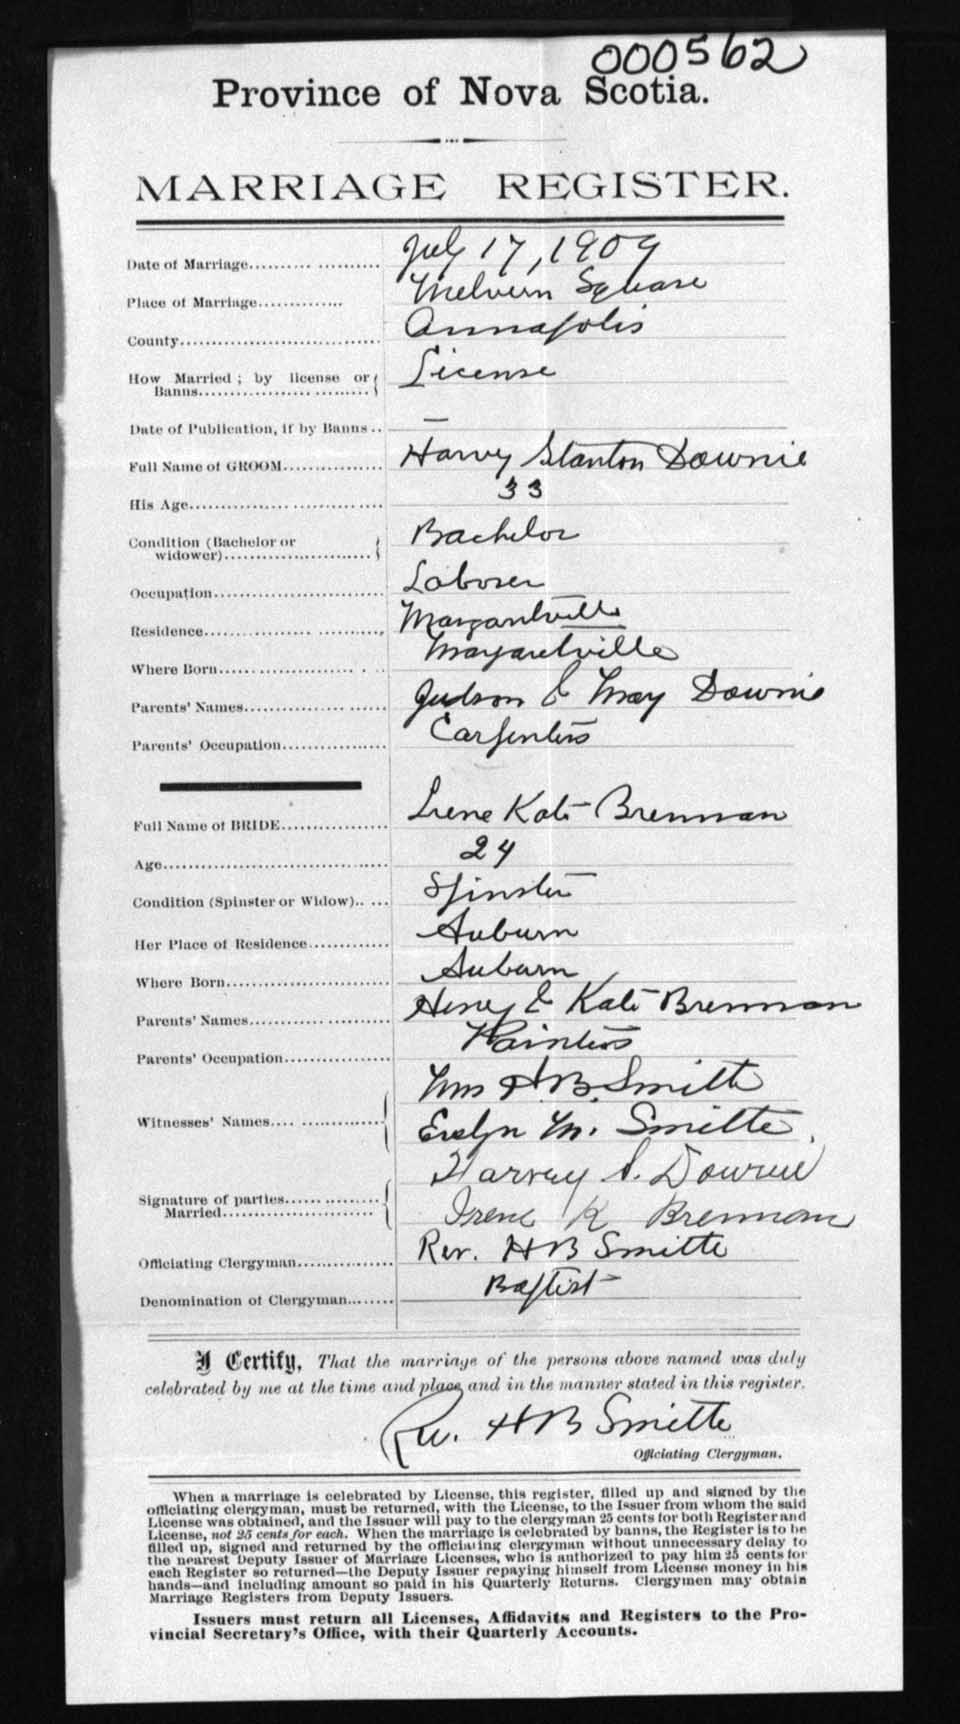 000562
Province of Nova Scotia.
MARRIAGE REGISTER.
Date of Marriage.......... ........... July 17, 1909
Place of Marriage.............. Melvern Square
County.................................. Annapolis
How Married ; by license or Banns.................... ......... License
Date of Publication, if by Banns .. —
Full Name of GROOM................ Harvey Stanton Downie
His Age................ ................ 33
Condition (Bachelor or widower)......................... Bachelor
Occupation............................. Laborer
Residence.................. ........... Margaretville
Where Born..................... . . . Margaretville
Parents' Names.................. ...... Judson & May Downie
Parents' Occupation................. Carpenters
Full Name of BRIDE................. Irene Kate Brennan
Age...................................... 24
Condition (Spinster or Widow).. ... Spinster
Her Place of Residence............. Auburn
Where Born............................ Auburn
Parents' Names............. ........... Henry & Kate Brennan
Parents' Occupation.................. Painters
Witnesses' Names.... .............. Mrs H.B. Smith
Evelyn M. Smith
Signature of parties...... ........... Harvey S. Downie
Married.......................... Irene K Brennan
Officiating Clergyman................ Rev. H B Smith
Denomination of Clergyman........ Baptist
I Certify, That the marriage of the persons above named was duly
celebrated by me at the time and place, and in the manner stated in this register.
Rev. H B Smith
Officiating Clergyman.
When a marriage is celebrated by License, this register, filled up and signed by the
officiating clergyman, must be returned, with the License, to the Issuer from whom the said
License was obtained, and the Issuer will pay to the clergyman 25 cents for both Register and
License, not 25 cents for each. When the marriage is celebrated by banns, the Register is to be
filled up, signed and returned by the officiating clergyman without unnecessary delay to
the nearest Deputy Issuer of Marriage Licenses, who is authorized to pay him 25 cents for
each Register so returned—the Deputy Issuer repaying himself from License money in his
hands—and including amount so paid in his Quarterly Returns. Clergymen may obtain
Marriage Registers from Deputy Issuers.
Issuers must return all Licenses, Affidavits and Registers to the Pro-
vincial Secretary's Office, with their Quarterly Accounts.